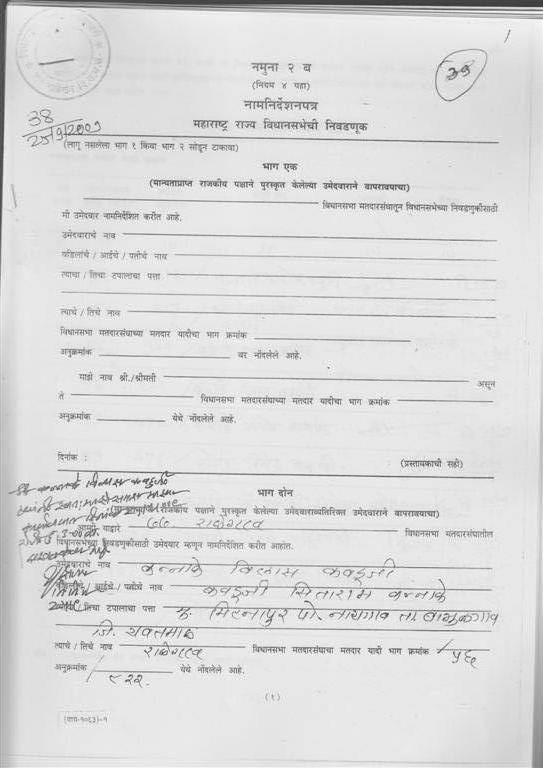 १
नमुना २ ब
39
(नियम ४ पहा)
नामनिर्देशनपत्र
38
25/9/2009
महाराष्ट्र राज्य विधानसभेची निवडणूक
(लागू नसलेला भाग १ किंवा भाग २ सोडून टाकावा)
भाग एक
(मान्यताप्राप्त राजकीय पक्षाने पुरस्कृत केलेल्या उमेदवाराने वापरावयाचा)
विधानसभा मतदारसंघातून विधानसभेच्या निवडणुकीसाठी
मी उमेदवार नामनिर्देशित करीत आहे.
उमेदवाराचे नाव
वडिलांचे / आईचे / पतीचे नाव
त्याचा / तिचा टपालाचा पत्ता
त्याचे / तिचे नाव
विधानसभा मतदारसंघाच्या मतदार यादीचा भाग क्रमांक
अनुक्रमांक वर नोंदलेले आहे.
माझे नाव श्री./श्रीमती असून
ते विधानसभा मतदारसंघाच्या मतदार यादीचा भाग क्रमांक
अनुक्रमांक येथे नोंदलेले आहे.
दिनांक :
(प्रस्तावकाची सही)
भाग दोन
राजकीय पक्षाने पुरस्कृत केलेल्या उमेदवाराव्यतिरिक्त उमेदवाराने वापरावयाचा)
आम्ही याद्वारे ७७ राळेगाव विधानसभा मतदारसंघातील
विधानसभेच्या निवडणुकीसाठी उमेदवार म्हणून नामनिर्देशित करीत आहोत.
उमेदवाराचे नाव कुन्नाके विलास कवडुजी
वडिलांचे / आईचे / पतीचे नाव कवडुजी सिताराम कुन्नाके
तिचा टपालाचा पत्ता मु. मिटनापुर पो. नायगाव ता. बाभुळगाव
जि. यवतमाळ
त्याचे / तिचे नाव राळेगाव विधानसभा मतदारसंघाचा मतदार यादी भाग क्रमांक ५६
अनुक्रमांक ८२२ येथे नोंदलेले आहे.
(१)
(वाय-१०६३)-१